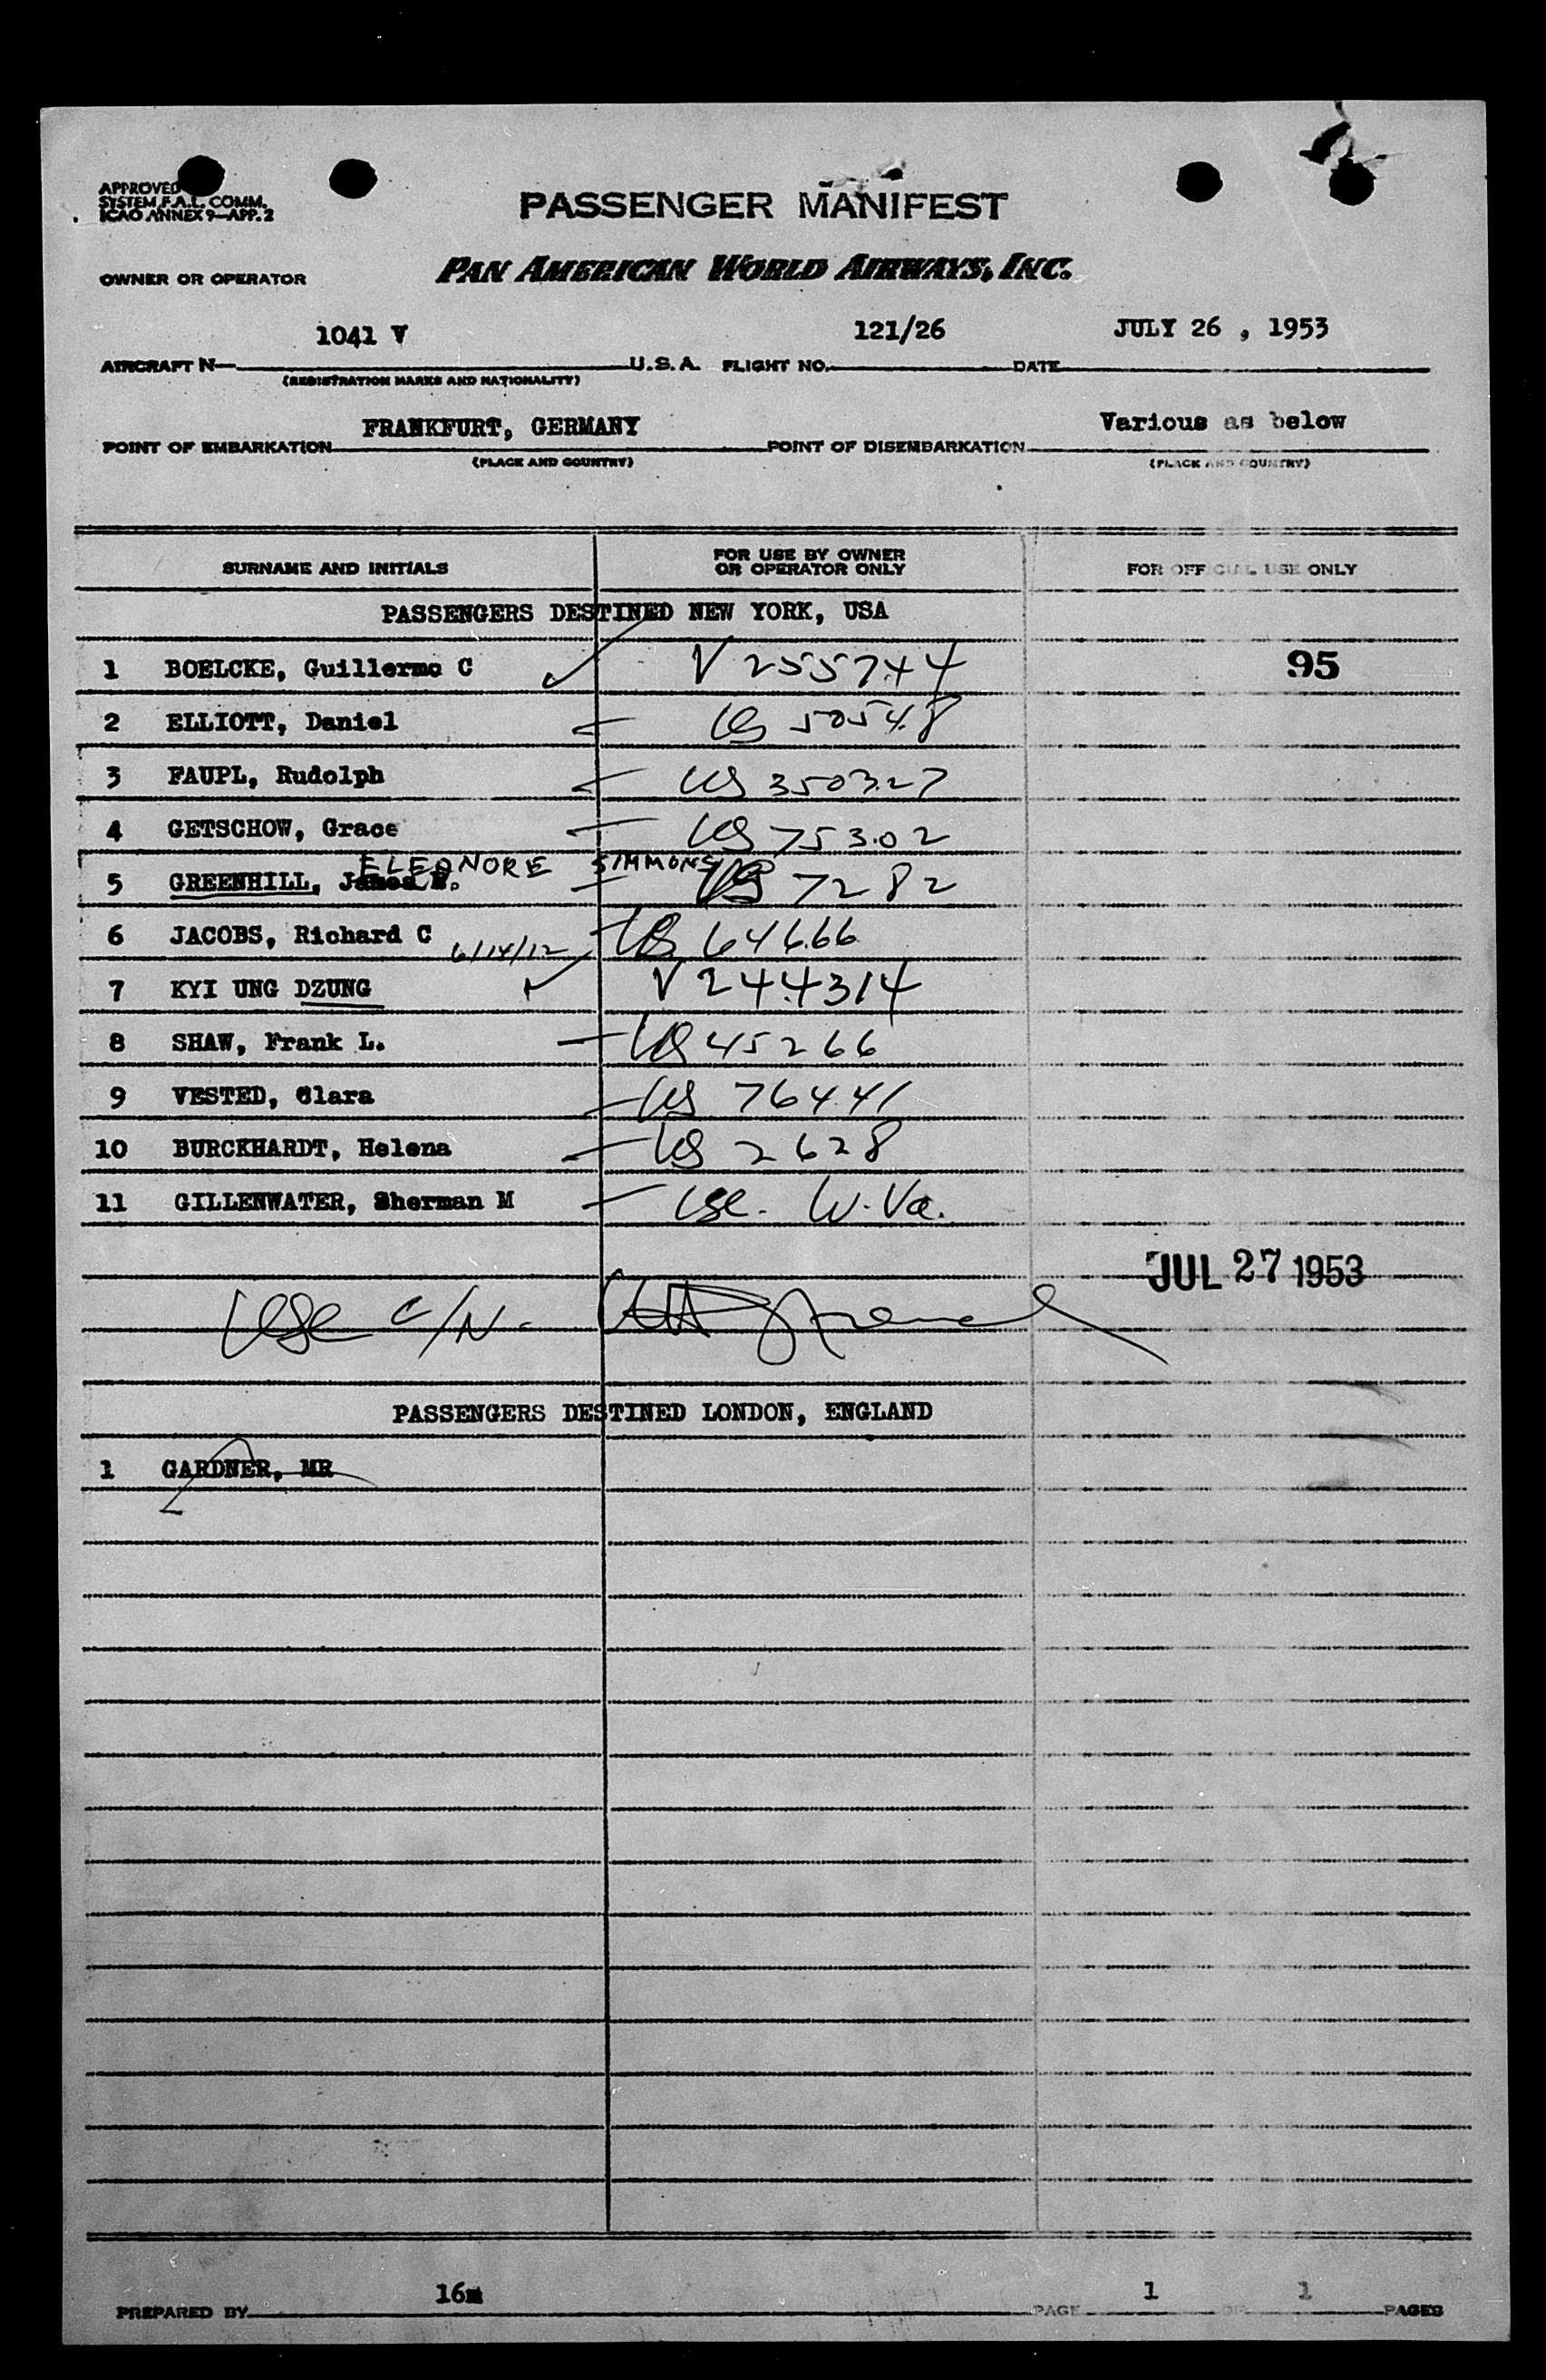 APPROVED
SYSTEM F.A.L. COMM.
ICAO ANNEX 9—APP. 2
PASSENGER MANIFEST
OWNER OR OPERATOR PAN AMERICAN WORLD AIRWAYS, INC.
AIRCRAFT N— 1041 V U.S.A. FLIGHT NO. 121/26 DATE JULY 26 , 1953
(REGISTRATION MARKS AND NATIONALITY)
POINT OF EMBARKATION FRANKFURT, GERMANY POINT OF DISEMBARKATION Various as below
(PLACE AND COUNTRY) (PLACE AND COUNTRY)
SURNAME AND INITIALS FOR USE BY OWNER OR OPERATOR ONLY FOR OFFICIAL USE ONLY
PASSENGERS DESTINED NEW YORK, USA
1 BOELCKE, Guillermo C V 255744 95
2 ELLIOTT, Daniel US 50548
3 FAUPL, Rudolph US 350327
4 GETSCHOW, Grace US 75302
ELEANORE SIMMONS
5 GREENHILL, James E. US 7282
6 JACOBS, Richard C 6/14/12 US 64666
7 KYI UNG DZUNG V 244314
8 SHAW, Frank L. US 45266
9 VESTED, Clara US 76441
10 BURCKHARDT, Helena US 2628
11 GILLENWATER, Sherman M USC. W. Va.
JUL 27 1953
USC C/N.
PASSENGERS DESTINED LONDON, ENGLAND
1 GARDNER, MR
PREPARED BY 16m PAGE 1 OF 1 PAGES